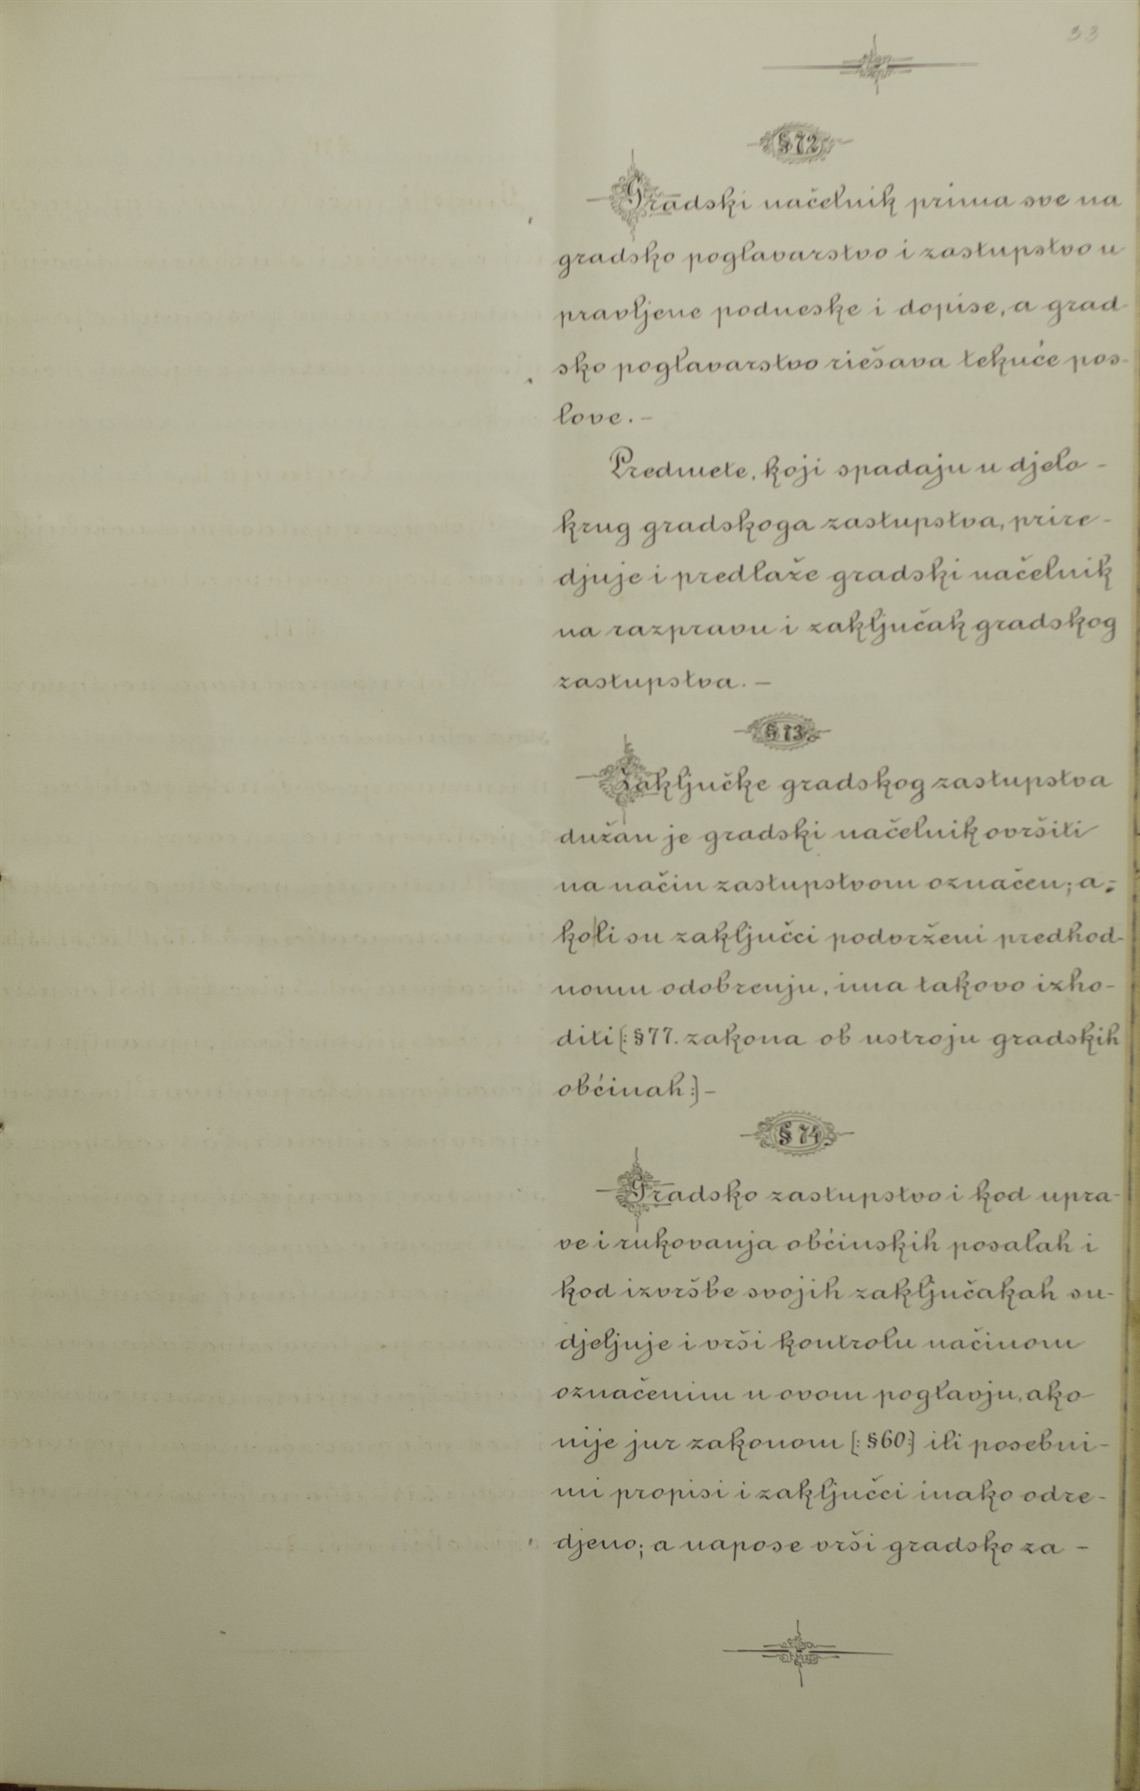 33
§ 72.
Gradski načelnik prima sve na
gradsko poglavarstvo i zastupstvo u
pravljene podneske i dopise, a grad-
sko poglavarstvo riešava tekuće pos-
love. –
Predmete, koji spadaju u djelo -
krug gradskoga zastupstva, prire -
djuje i predlaže gradski načelnik
na razpravu i zaključak gradskog
zastupstva. –
§ 73.
Zaključke gradskog zastupstva
dužan je gradski načelnik ovršiti
na način zastupstvom označen; a;
koli su zaključci podvrženi predhod-
nomu odobrenju, ima takovo izho-
diti (: § 77. zakona ob ustroju gradskih
obćinah :) –
§ 74.
Gradsko zastupstvo i kod upra-
ve i rukovanja obćinskih posalah i
kod izvršbe svojih zaključakah su-
djeljuje i vrši kontrolu načinom
označenim u ovom poglavju, ako
nije jur zakonom (: § 60 :) ili posebni -
mi propisi i zaključci inako odre -
djeno; a napose vrši gradsko za -